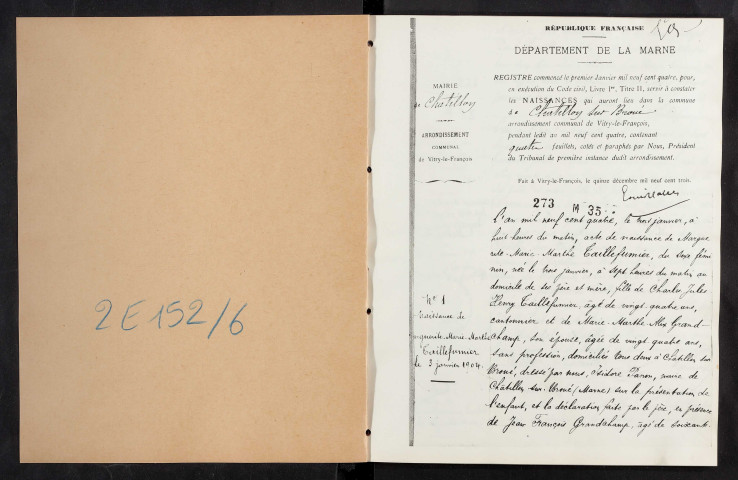 2 E 152/6
RÉPUBLIQUE FRANÇAISE
DÉPARTEMENT DE LA MARNE
MAIRIE
de Châtillon
ARRONDISSEMENT
COMMUNAL
de Vitry-le-François
REGISTRE commencé le premier Janvier mil neuf cent quatre, pour,
en exécution du Code civil, Livre Ier, Titre II, servir à constater
les NAISSANCES qui auront lieu dans la commune
de Châtillon sur Broué
arrondissement communal de Vitry-le-François,
pendant ledit an mil neuf cent quatre, contenant
quatre feuillets, cotés et paraphés par Nous, Président
du Tribunal de première instance dudit arrondissement.
Fait à Vitry-le-François, le quinze décembre mil neuf cent trois.
273 M 35
L'an mil neuf cent quatre, le trois janvier, à
huit heures du matin, acte de naissance de Margue
rite-Marie-Marthe Taillefumier, du sexe fémi
nin, née le trois janvier, à sept heures du matin au
domicile de ses père et mère, fille de Charles Jules
Henry Taillefumier, âgé de vingt quatre ans,
cantonnier et de Marie-Marthe-Alix Grand-
champ, son épouse, âgée de vingt quatre ans,
sans profession, domiciliés tous deux à Châtillon sur
Broué, dressé par nous, Isidore Paron, maire de
Châtillon-sur-Broué (Marne) sur la présentation de
l'enfant, et la déclaration faite par le père, en présence
de Jean François Grandchamp, âgé de soixante
No 1
Naissance de
Marguerite-Marie-Marthe
Taillefumier
le 3 janvier 1904.